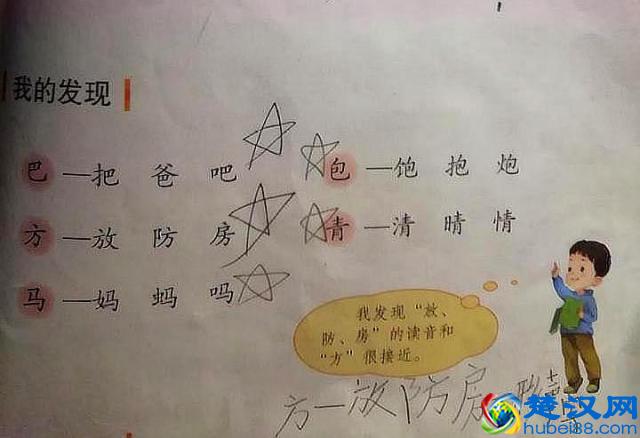 我的发现
巴—把 爸 吧
包—饱 抱 炮
方—放 防 房
青—清 晴 情
马—妈 蚂 吗
我发现“放、
防、房”的读音和
“方”很接近。
方—放 防 房
楚汉网
hubei88.com